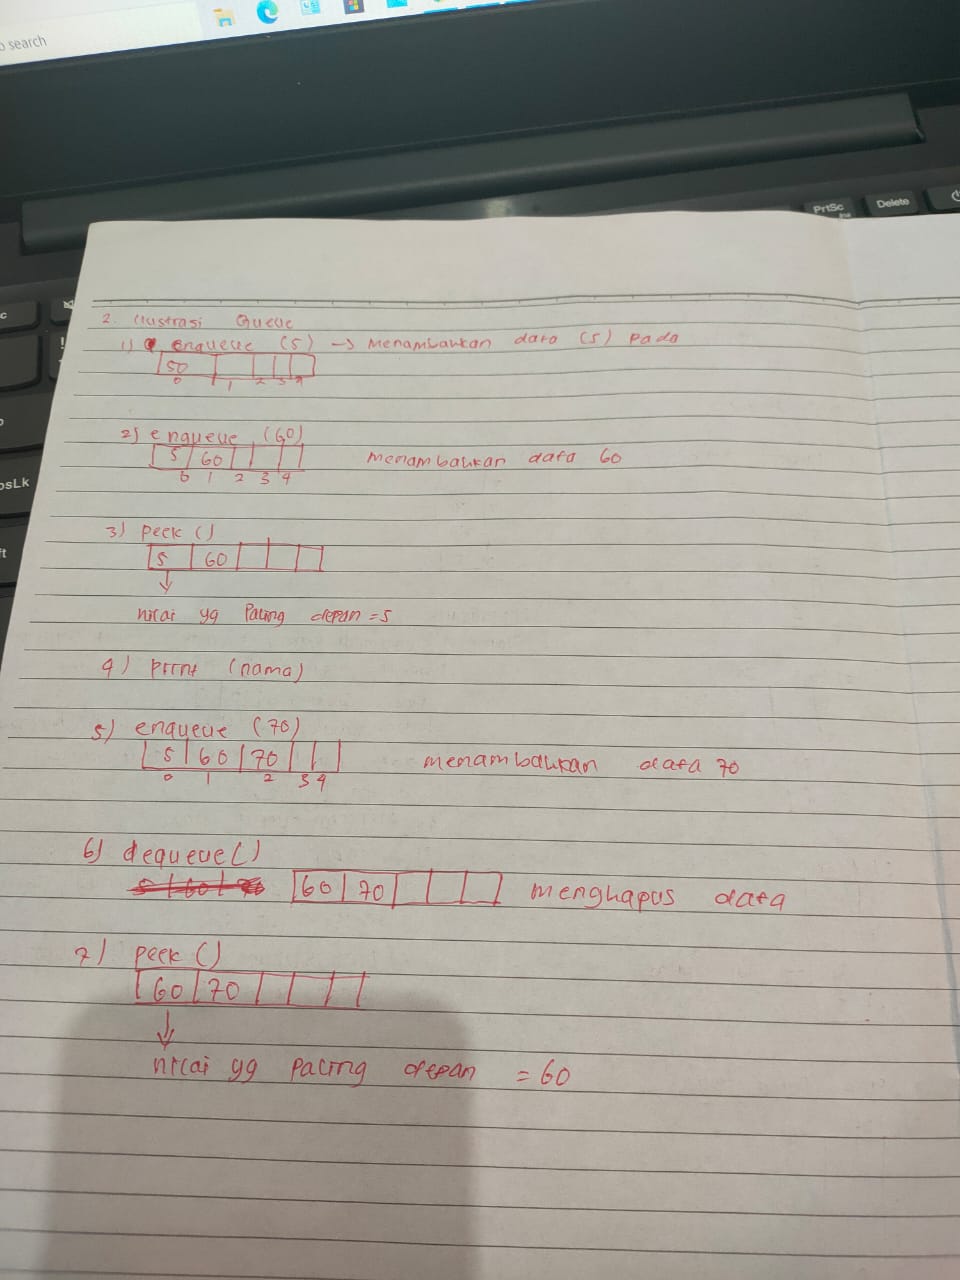 search
PrtSc
Delete
2. Ilustrasi Queue
1) enqueue (5) → Menambahkan data (5) pada
50
0 1 2 3 4
2) enqueue (60)
5 60 menambahkan data 60
0 1 2 3 4
3) peek ()
5 60
nilai yg paling depan = 5
4) print (nama)
5) enqueue (70)
5 60 70 menambahkan data 70
0 1 2 3 4
6) dequeue()
5 60 70 60 70 menghapus data
7) peek ()
60 70
nilai yg paling depan = 60